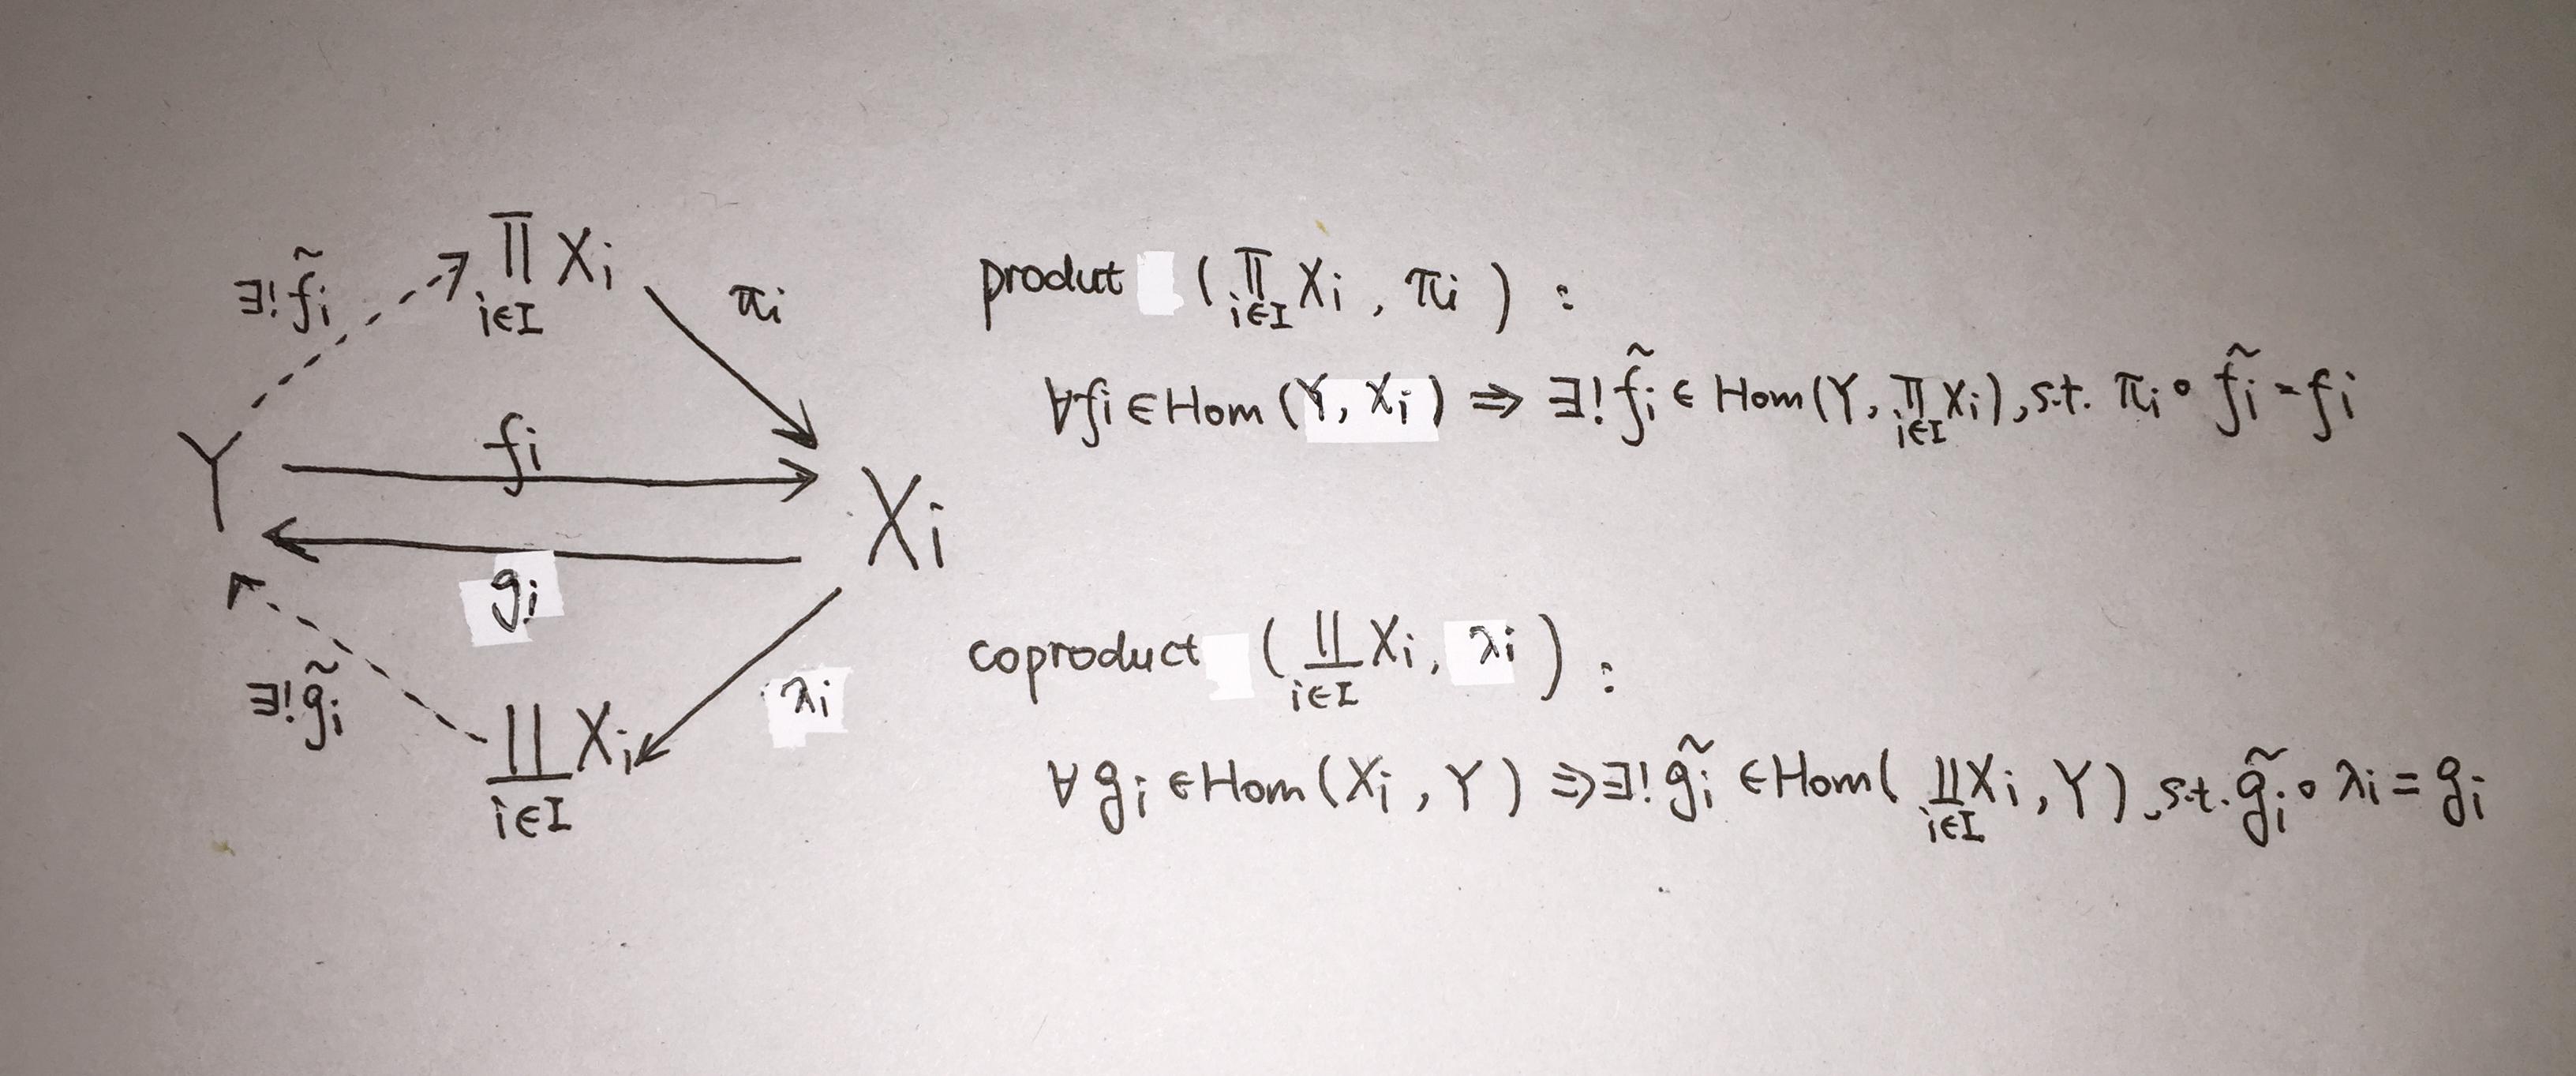 ∃! f̃ᵢ
∏ Xᵢ
i∈I
πᵢ
Y
fᵢ
Xᵢ
gᵢ
∃! g̃ᵢ
∐ Xᵢ
i∈I
λᵢ
product ( ∏ Xᵢ , πᵢ ) :
i∈I
∀fᵢ ∈ Hom (Y, Xᵢ) ⇒ ∃! f̃ᵢ ∈ Hom (Y, ∏ Xᵢ), s.t. πᵢ ∘ f̃ᵢ = fᵢ
i∈I
coproduct ( ∐ Xᵢ, λᵢ ) :
i∈I
∀ gᵢ ∈ Hom (Xᵢ , Y) ⇒ ∃! g̃ᵢ ∈ Hom ( ∐ Xᵢ , Y) , s.t. g̃ᵢ ∘ λᵢ = gᵢ
i∈I